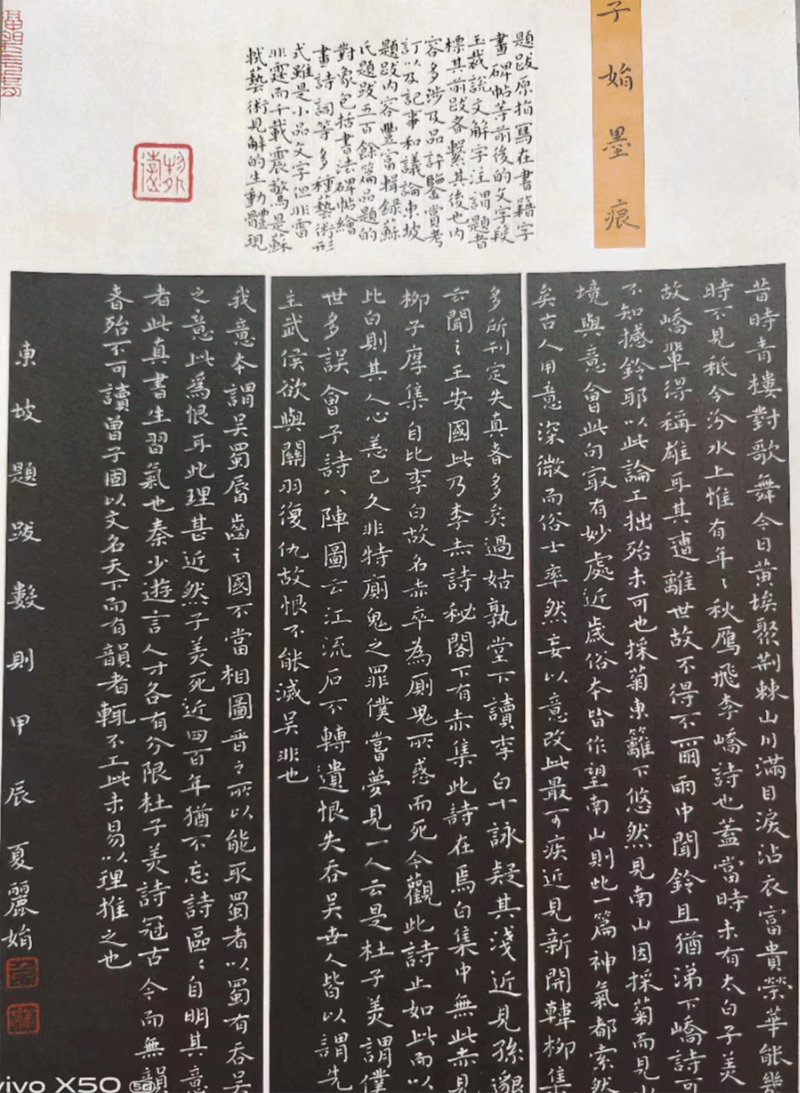 子娟墨痕
題跋原指寫在書籍字
畫碑帖等前後的文字段
玉裁說文解字注謂題者
標其前跋者繫其後也內
容多涉及品評鑒賞考
訂以及記事和議論東坡
題跋內容豐富輯錄蘇
氏題跋五百餘篇品題的
對象包括書法碑帖繪
畫詩詞等多種藝術形
式雖是小品文字但非雷
非霆而千載震驚是蘇
軾藝術見解的生動體現
昔時青樓對歌舞今日黃埃聚荊棘山川滿目淚沾衣富貴榮華能幾
時不見秖今汾水上惟有年〻秋鴈飛李嶠詩也蓋當時未有太白子美
故嶠輩得稱雄耳其遭離世故不得不爾雨中聞鈴且猶涕下嶠詩可
不知撼鈴耶以此論工拙殆未可也採菊東籬下悠然見南山因採菊而見山
境與意會此句最有妙處近歲俗本皆作望南山則此一篇神氣都索然
矣古人用意深微而俗士率然妄以意改此最可疾近見新開韓柳集
多所刊定失真者多矣過姑孰堂下讀李白十詠疑其淺近見孫邈
云聞之王安國此乃李赤詩秘閣下有赤集此詩在焉白集中無此赤見
柳子厚集自比李白故名赤卒為廁鬼所惑而死今觀此詩止如此而以
比白則其人心恙已久非特廁鬼之罪僕嘗夢見一人云是杜子美謂僕
世多誤會予詩八陣圖云江流石不轉遺恨失吞吳世人皆以謂先
主武侯欲與關羽復仇故恨不能滅吳非也
我意本謂吳蜀脣齒之國不當相圖晉之所以能取蜀者以蜀有吞吳
之意此為恨耳此理甚近然子美死近四百年猶不忘詩區〻自明其意
者此真書生習氣也秦少遊言人才各有分限杜子美詩冠古今而無韻
者殆不可讀曾子固以文名天下而有韻者輒不工此未易以理推之也
東坡題跋數則甲辰夏麗娟
vivo X50 5G